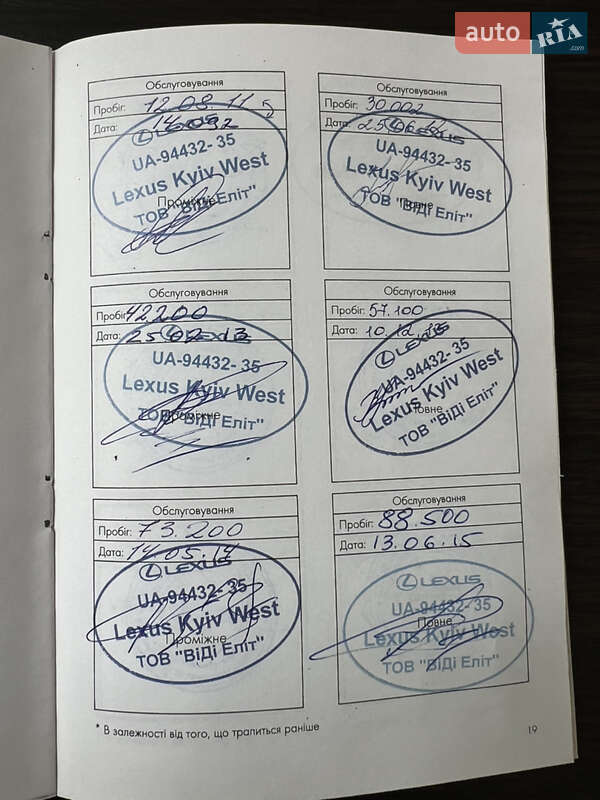 auto RIA.com
Обслуговування
Пробіг: 12.08.11
Дата:
UA-94432-35
Lexus Kyiv West
Проміжне
ТОВ "ВіДі Еліт"
Обслуговування
Пробіг: 30.002
Дата: 25.06.12
LEXUS
UA-94432-35
Lexus Kyiv West
Повне
ТОВ "ВіДі Еліт"
Обслуговування
Пробіг: 42200
Дата: 25.02.13
LEXUS
UA-94432-35
Lexus Kyiv West
Проміжне
ТОВ "ВіДі Еліт"
Обслуговування
Пробіг: 57.100
Дата: 10.12.13
LEXUS
UA-94432-35
Lexus Kyiv West
Повне
ТОВ "ВіДі Еліт"
Обслуговування
Пробіг: 73.200
Дата: 14.05.14
LEXUS
UA-94432-35
Lexus Kyiv West
Проміжне
ТОВ "ВіДі Еліт"
Обслуговування
Пробіг: 88.500
Дата: 13.06.15
LEXUS
UA-94432-35
Повне
Lexus Kyiv West
ТОВ "ВіДі Еліт"
* В залежності від того, що трапиться раніше
19